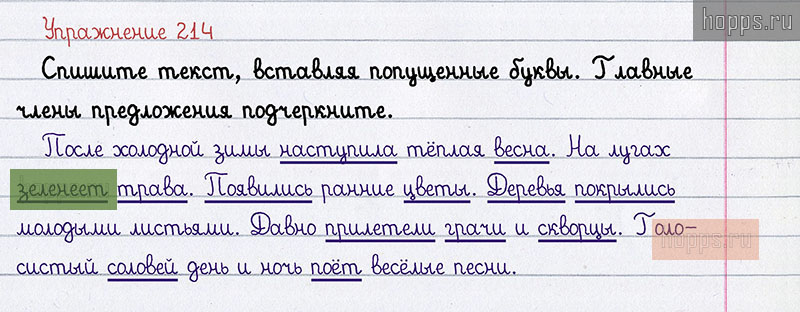 hopps.ru
Упражнение 214
Спишите текст, вставляя попущенные буквы. Главные
члены предложения подчеркните.
После холодной зимы наступила тёплая весна. На лугах
зеленеет трава. Появились ранние цветы. Деревья покрылись
молодыми листьями. Давно прилетели грачи и скворцы. Голо-
hopps.ru
систый соловей день и ночь поёт весёлые песни.